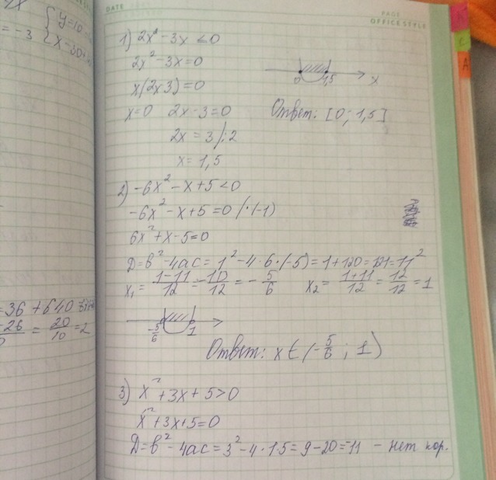 DATE
PAGE
OFFICE STYLE
{ y=10
= -3
1) 2x² - 3x < 0
2x² - 3x = 0
x(2x3) = 0
x=0 2x-3=0
2x = 3 /:2
x = 1,5
0 1,5 x
Ответ: [0; 1,5]
2) -6x² - x + 5 < 0
-6x² - x + 5 = 0 /·(-1)
6x² + x - 5 = 0
D = b² - 4ac = 1² - 4·6·(-5) = 1 + 120 = 121 = 11²
x₁ = (1-11)/12 = -10/12 = -5/6 x₂ = (1+11)/12 = 12/12 = 1
-5/6 1
Ответ: x ∈ (-5/6; 1)
= 36 + 640
-26 = 20/10 = 2
3) x² + 3x + 5 > 0
x² + 3x + 5 = 0
D = b² - 4ac = 3² - 4·1·5 = 9 - 20 = -11 - нет кор.